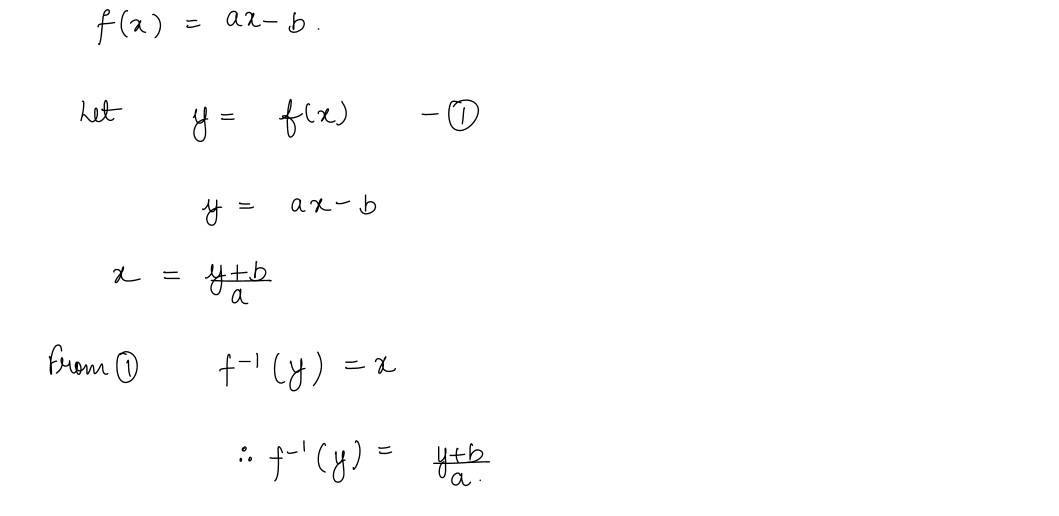 f(x) = ax - b.
Let y = f(x) - ①
y = ax - b
x = \frac{y+b}{a}
From ① f⁻¹(y) = x
∴ f⁻¹(y) = \frac{y+b}{a}.